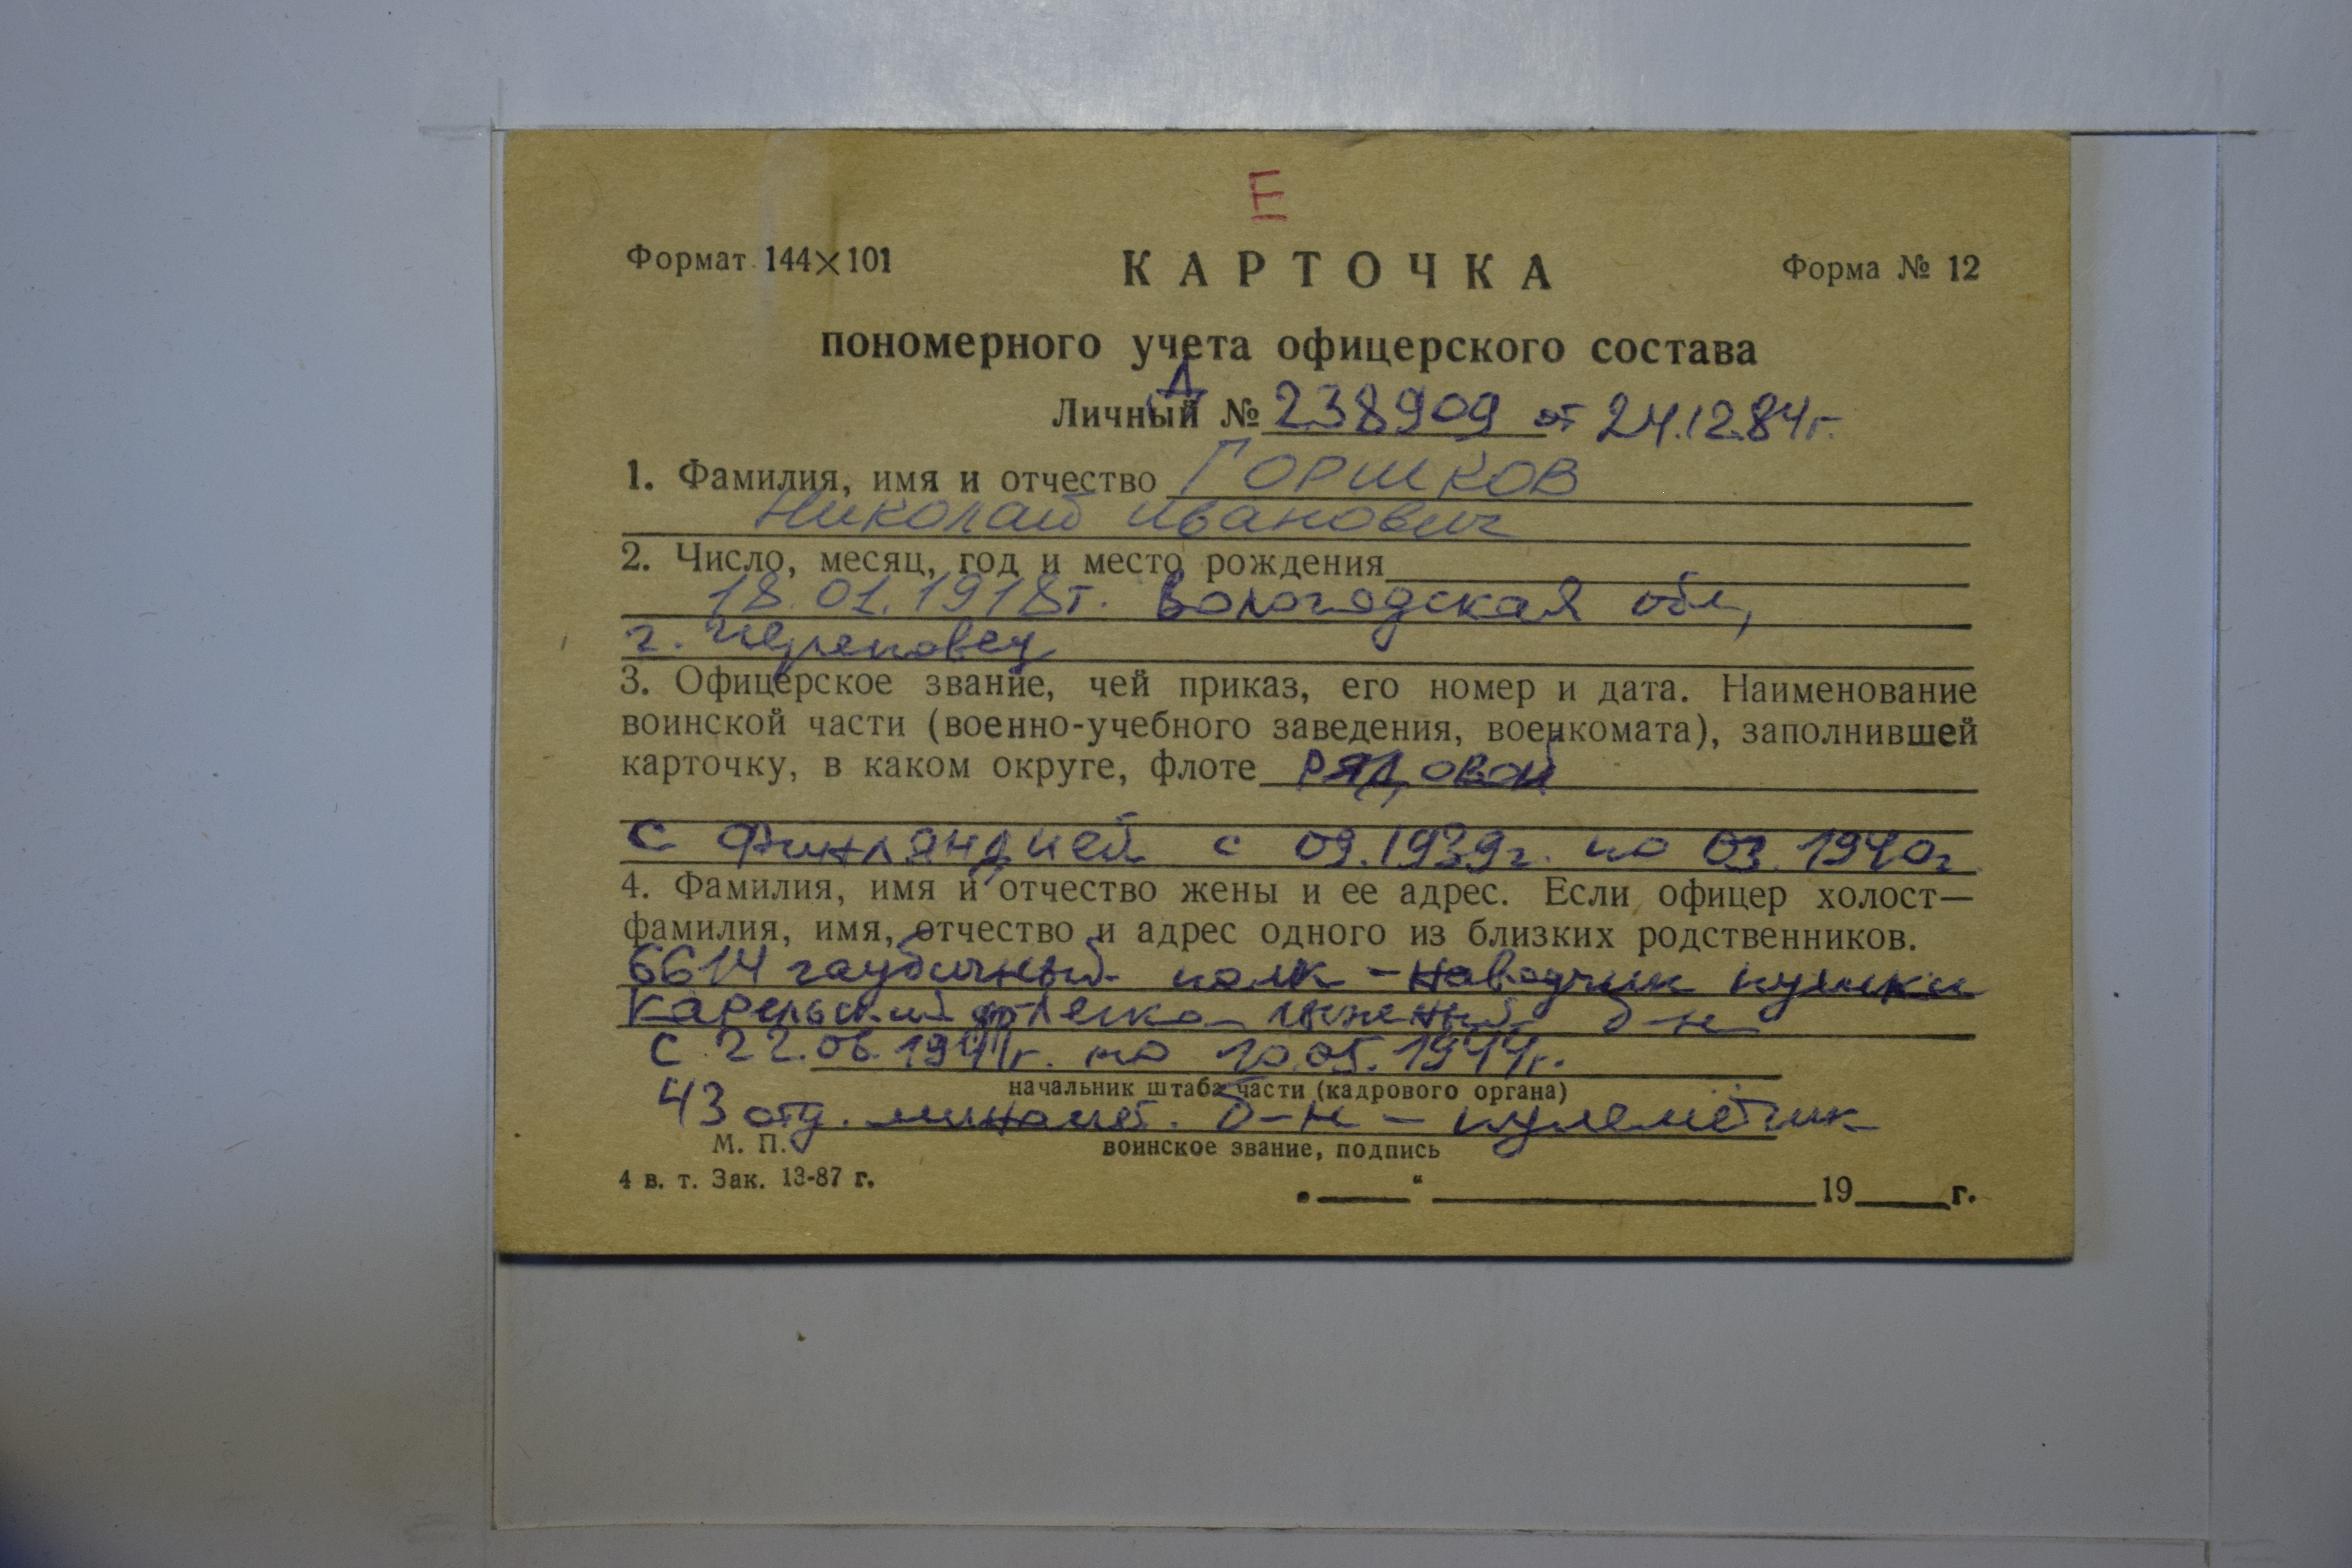 Е
Формат 144×101 КАРТОЧКА Форма № 12
пономерного учета офицерского состава
Д
Личный № 238909 от 24.12.84г.
1. Фамилия, имя и отчество ГОРШКОВ
Николай Иванович
2. Число, месяц, год и место рождения
18.01.1918г. Вологодская обл,
г. Череповец
3. Офицерское звание, чей приказ, его номер и дата. Наименование
воинской части (военно-учебного заведения, военкомата), заполнившей
карточку, в каком округе, флоте рядовой
с Финляндией с 09.1939г. по 03.1940г
4. Фамилия, имя и отчество жены и ее адрес. Если офицер холост—
фамилия, имя, отчество и адрес одного из близких родственников.
6614 гаубичный полк - наводчик пушки
Карельский легко-лыжный б-н
с 22.06.1941г. по 10.05.1944г.
начальник штаба части (кадрового органа)
43 отд. миномет. б-н - пулемётчик
М. П. воинское звание, подпись
4 в. т. Зак. 13-87 г.
„ “ 19 г.